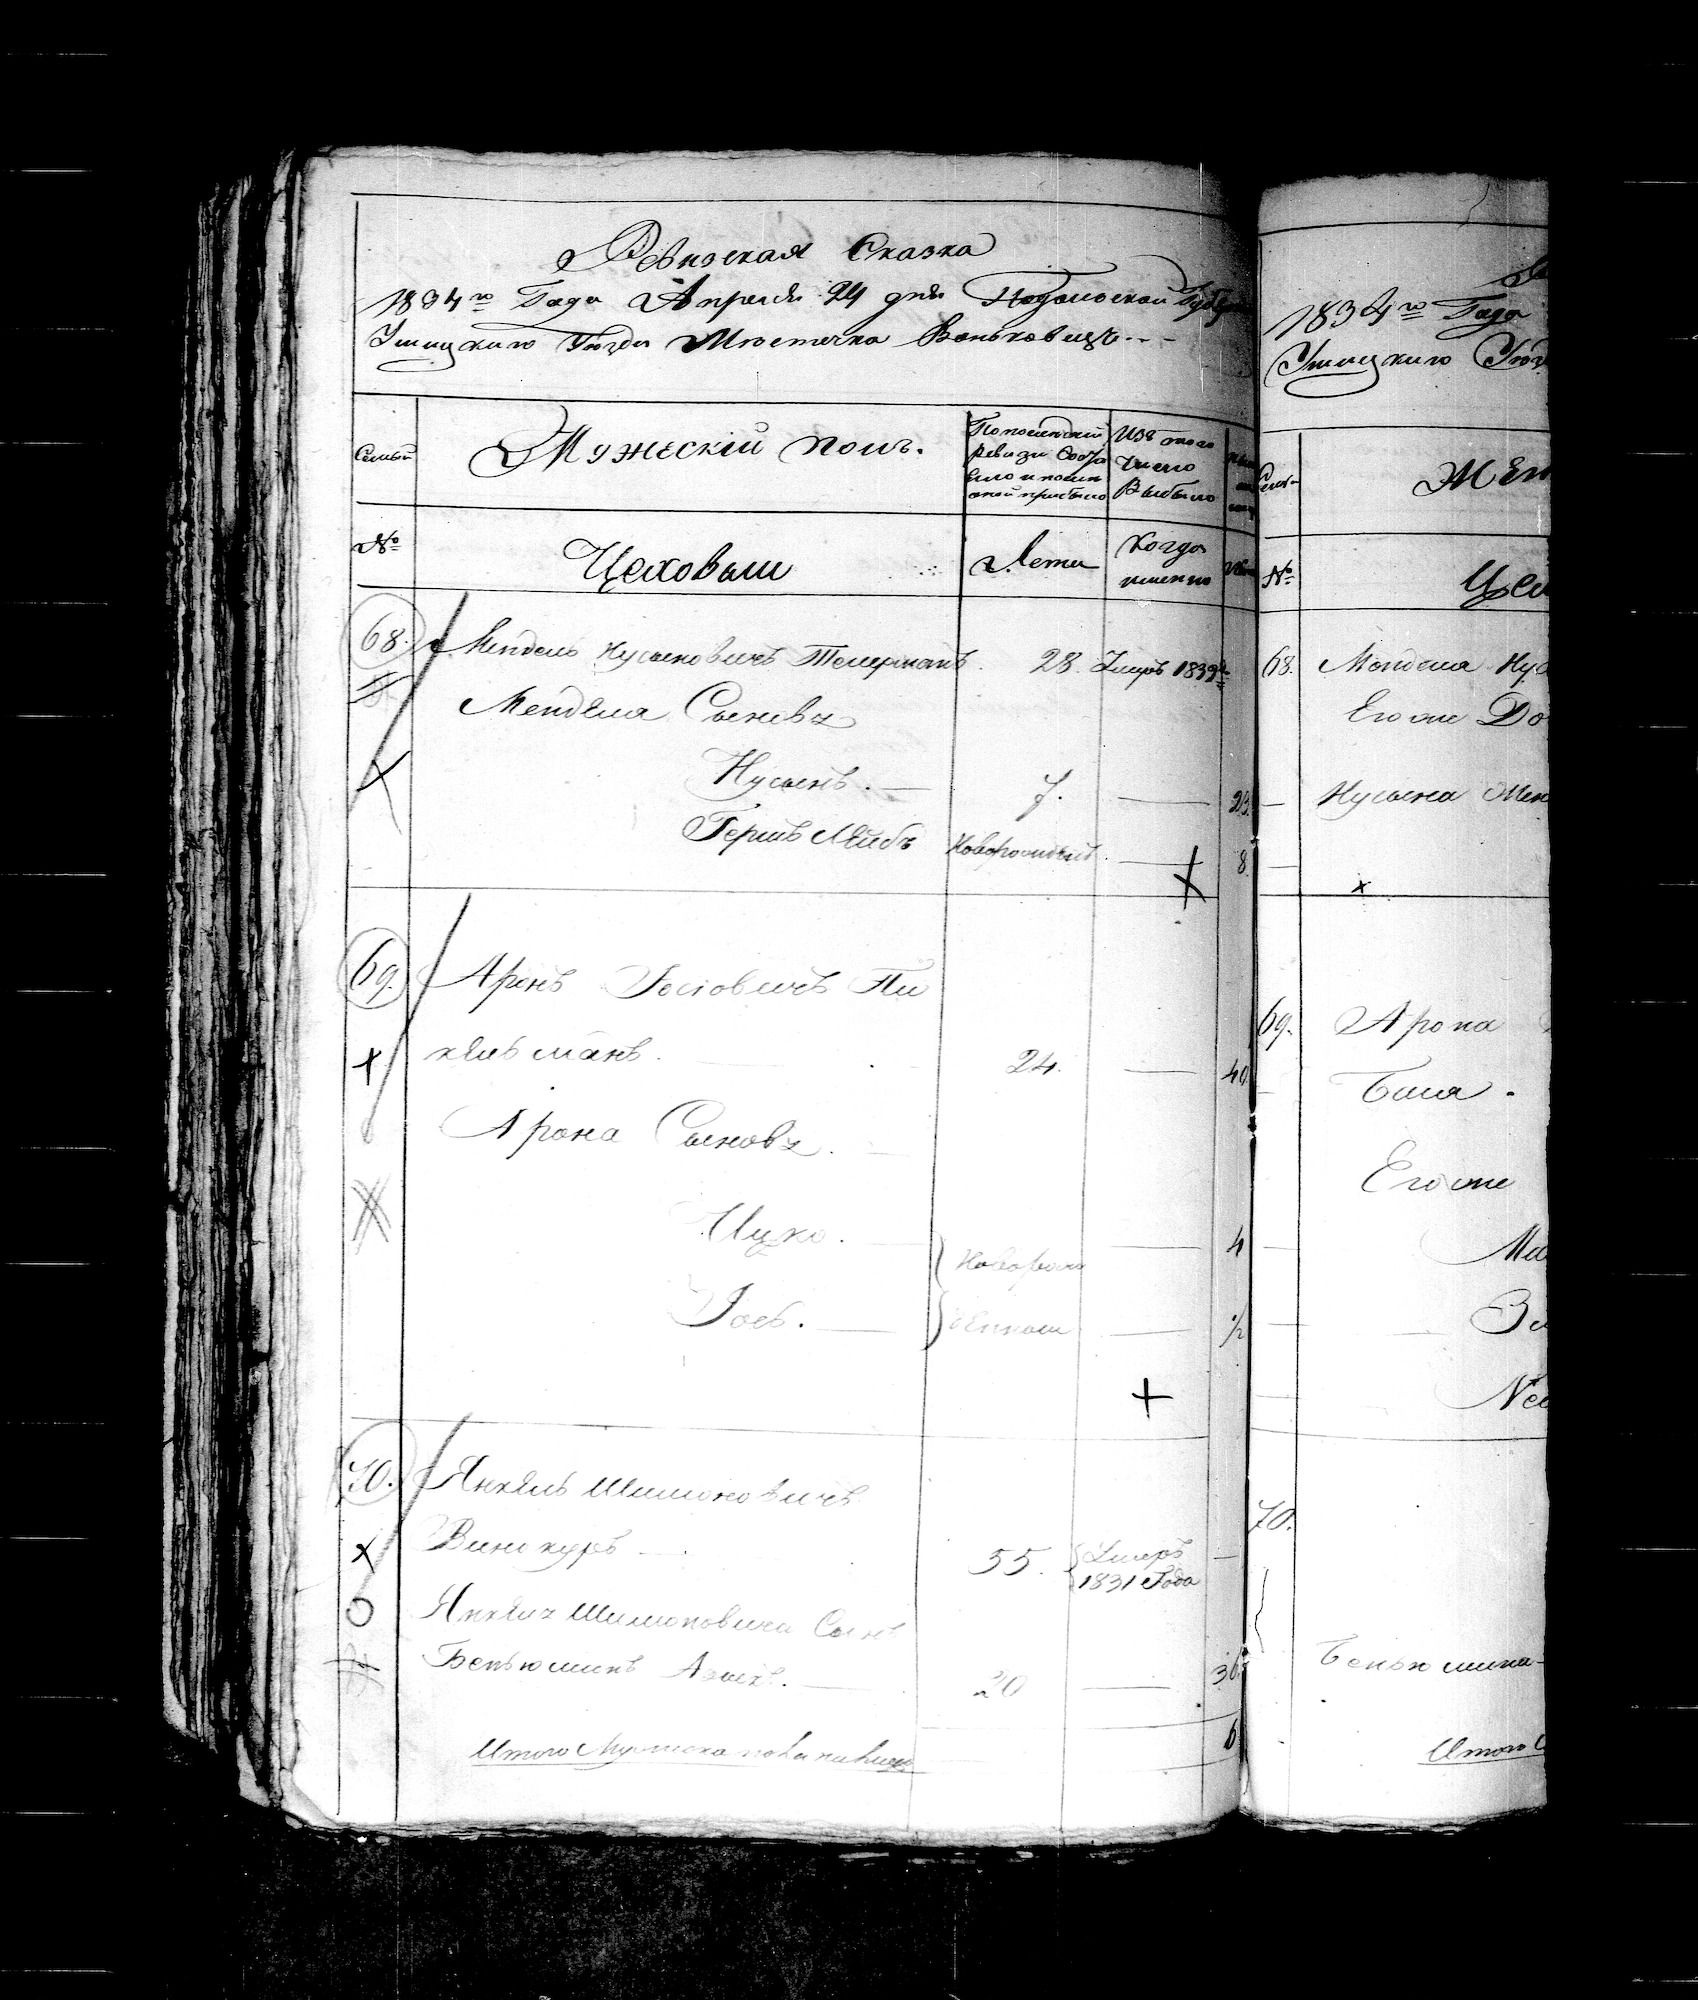 Ревизская Сказка
1834го Года Апреля 24 дня Подольской Губер
Ушицкаго Уезда Местечка Ваньковецъ
Семьи
Мужескій полъ.
По последней
ревизи состо
яло и после
оной прибыло
Изъ того
числа
Выбыло
№
Цеховыи
Лета
Когда
именно
68.
Мендель Нусыновичъ
28.
Умеръ 1832
Менделя Сыновя
Нусынъ.
7.
23.
Гершъ Лейбъ
Новорожденъ.
8.
69.
Аронъ Іосіовичъ Пи
кельманъ.
24.
40
Арона Сыновя.
Ицко.
Новорож
4
Іось.
денныи
1/2
70.
Янкель Шимоновичъ
Винокуръ
55.
Умеръ
1831 Года
Янкеля Шимоновича Сынъ
Беньюминъ
20
36
Итого Мужеска пола наличн
6
1834го Года
Ушицкаго Уез
Семьи
Жен
№
Цех
68.
Мендела Нус
Егоже До
Нусына Мен
69.
Арона
Бася.
Егоже
70.
Беньюмина
Итого